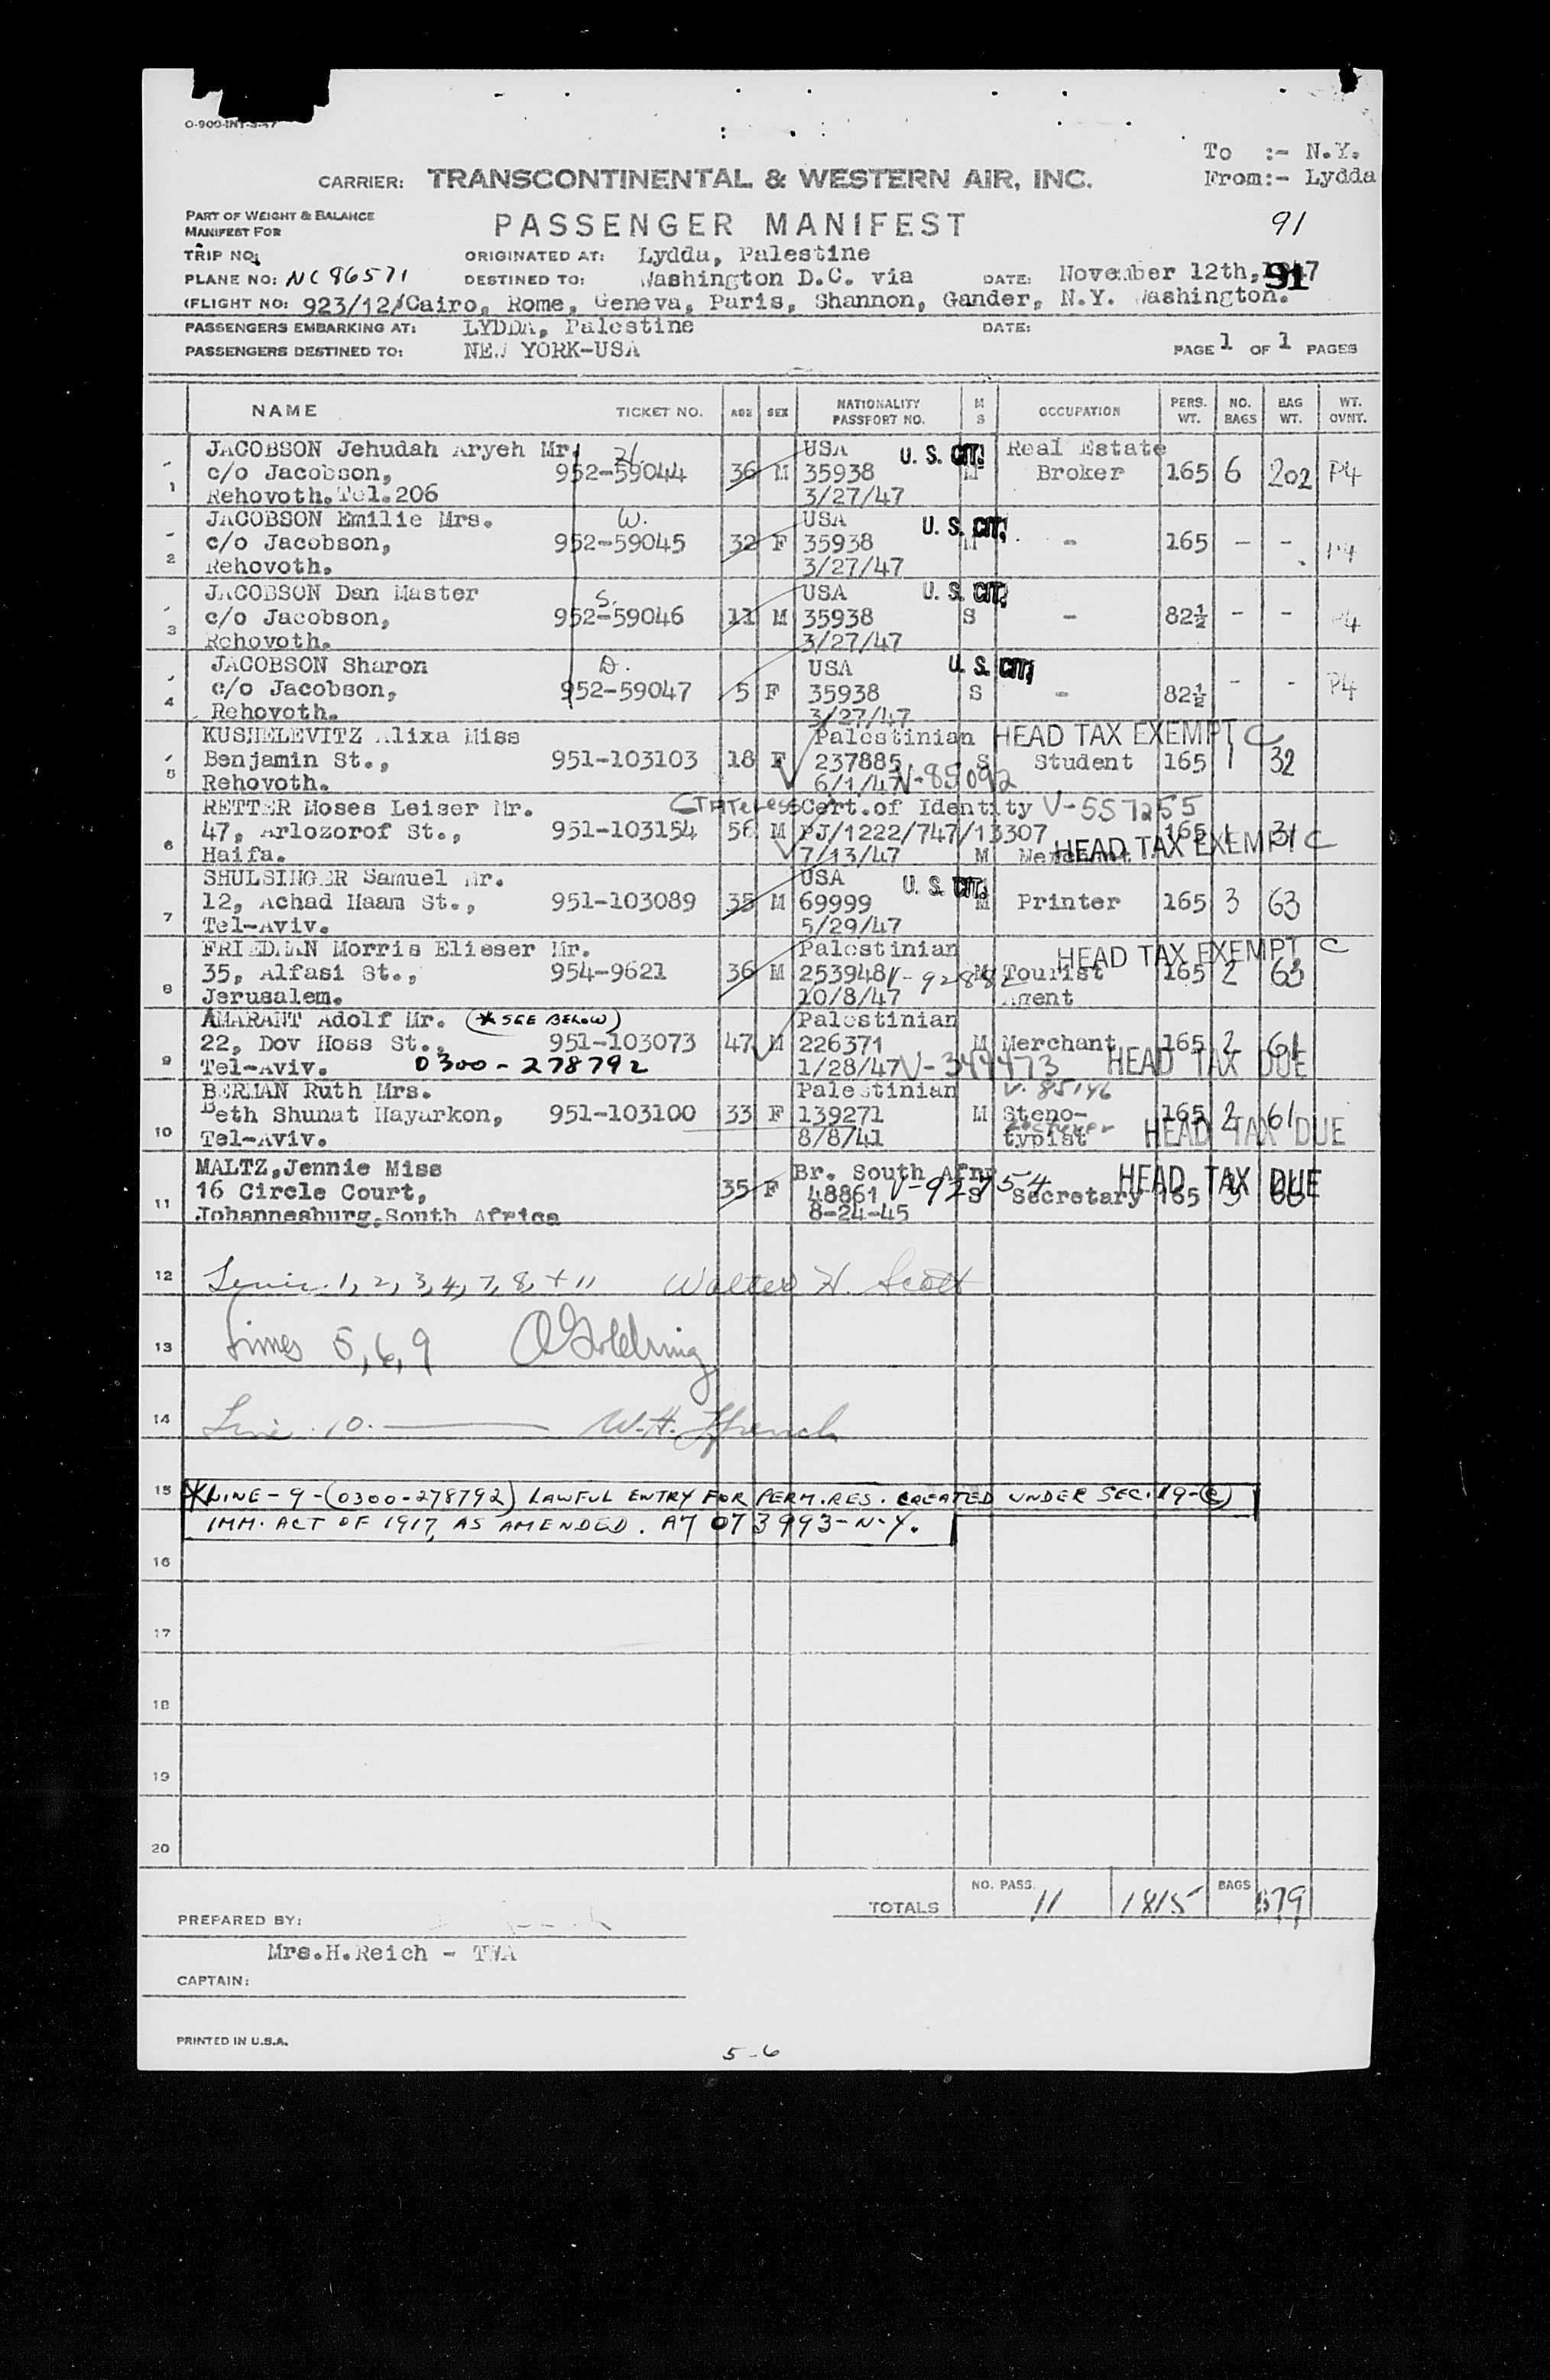 O-900-INT-3-47
To :- N.Y.
From:- Lydda
CARRIER: TRANSCONTINENTAL & WESTERN AIR, INC.
PART OF WEIGHT & BALANCE
MANIFEST FOR
PASSENGER MANIFEST
91
TRIP NO:
ORIGINATED AT: Lydda, Palestine
PLANE NO: NC86571
DESTINED TO: Washington D.C. via
DATE: November 12th, 1947
91
(FLIGHT NO: 923/12/Cairo, Rome, Geneva, Paris, Shannon, Gander, N.Y. Washington.
PASSENGERS EMBARKING AT: LYDDA, Palestine
DATE:
PASSENGERS DESTINED TO: NEW YORK-USA
PAGE 1 OF 1 PAGES
NAME TICKET NO. AGE SEX NATIONALITY PASSPORT NO. M S OCCUPATION PERS. WT. NO. BAGS BAG WT. WT. OVNT.
JACOBSON Jehudah Aryeh Mr. H. USA U. S. CIT. Real Estate
c/o Jacobson, 952-59044 36 M 35938 M Broker 165 6 202 P4
1 Rehovoth.Tel.206 3/27/47
JACOBSON Emilie Mrs. W. USA U. S. CIT.
c/o Jacobson, 952-59045 32 F 35938 M - 165 - - P4
2 Rehovoth. 3/27/47
JACOBSON Dan Master S. USA U. S. CIT.
c/o Jacobson, 952-59046 11 M 35938 S - 82½ - - P4
3 Rehovoth. 3/27/47
JACOBSON Sharon D. USA U. S. CIT.
c/o Jacobson, 952-59047 5 F 35938 S - 82½ - - P4
4 Rehovoth. 3/27/47
KUSHELEVITZ Alixa Miss Palestinian HEAD TAX EXEMPT C
Benjamin St., 951-103103 18 F 237885 S Student 165 1 32
5 Rehovoth. 6/1/47 V-85092
RETTER Moses Leiser Mr. STATELESS Cert.of Identity V-557255
47, Arlozorof St., 951-103154 56 M PJ/1222/747/13307 165 1 31
6 Haifa. 7/13/47 M Merchant HEAD TAX EXEMPT C
SHULSINGER Samuel Mr. USA U. S. CIT.
12, Achad Haam St., 951-103089 35 M 69999 M Printer 165 3 63
7 Tel-Aviv. 5/29/47
FRIEDMAN Morris Elieser Mr. Palestinian HEAD TAX EXEMPT C
35, Alfasi St., 954-9621 36 M 253948 M Tourist 165 2 63
8 Jerusalem. 10/8/47 Agent
AMARANT Adolf Mr. (* SEE BELOW) Palestinian
22, Dov Hoss St., 951-103073 47 M 226371 M Merchant 165 2 61
9 Tel-Aviv. 0300-278792 1/28/47 V-344473 HEAD TAX DUE
BERMAN Ruth Mrs. Palestinian V-85146
Beth Shunat Hayarkon, 951-103100 33 F 139271 M Steno- 165 2 61
10 Tel-Aviv. 8/8/41 typist HEAD TAX DUE
MALTZ,Jennie Miss Br. South Afr. HEAD TAX DUE
16 Circle Court, 35 F 48861 V-92754 S Secretary 165 3 66
11 Johannesburg,South Africa 8-24-45
12 Lines 1, 2, 3, 4, 7, 8, + 11 Walter H. Scott
13 Lines 5, 6, 9 Goldring
14 Line 10. W.H.
15 * LINE-9-(0300-278792) LAWFUL ENTRY FOR PERM.RES. CREATED UNDER SEC. 19-(C)
IMM. ACT OF 1917, AS AMENDED. A7 073993-N.Y.
16
17
18
19
20
TOTALS NO. PASS. 11 1815 BAGS 679
PREPARED BY:
Mrs.H.Reich - TWA
CAPTAIN:
PRINTED IN U.S.A.
5-6